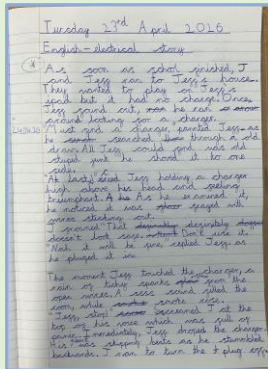 Tuesday 23rd April 2026
English - electrical story
As soon as school finished, J
and Jess ran to Jess's house.
They wanted to play on Jess's
ipad but it had no charge. Once
Jess found out, he ran
around looking for a charger.
Must find a charger, panted Jess as
he searched through a old
draw. All Jess could find was old
stuped junk he shoved it to one
side.
"At last, cried Jess holding a charger
high above his head and feeling
triumphant. As he examined it,
he noticed it was frayed with
wires sticking out.
J frowned "That definitely
doesn't look safe. Don't use it.
"Nah it will be fine, replied Jess as
he pluged it in.
The moment Jess touched the charger, a
rain of spiky sparks from the
open wires. A ssss sound filled the
room, while smoke rose.
Jess, stop screamed J at the
top of his voice which was full of
panic. Immediately, Jess droped the charger.
His was skipping beats as he stumbled
backwards. J ran to turn the plug off